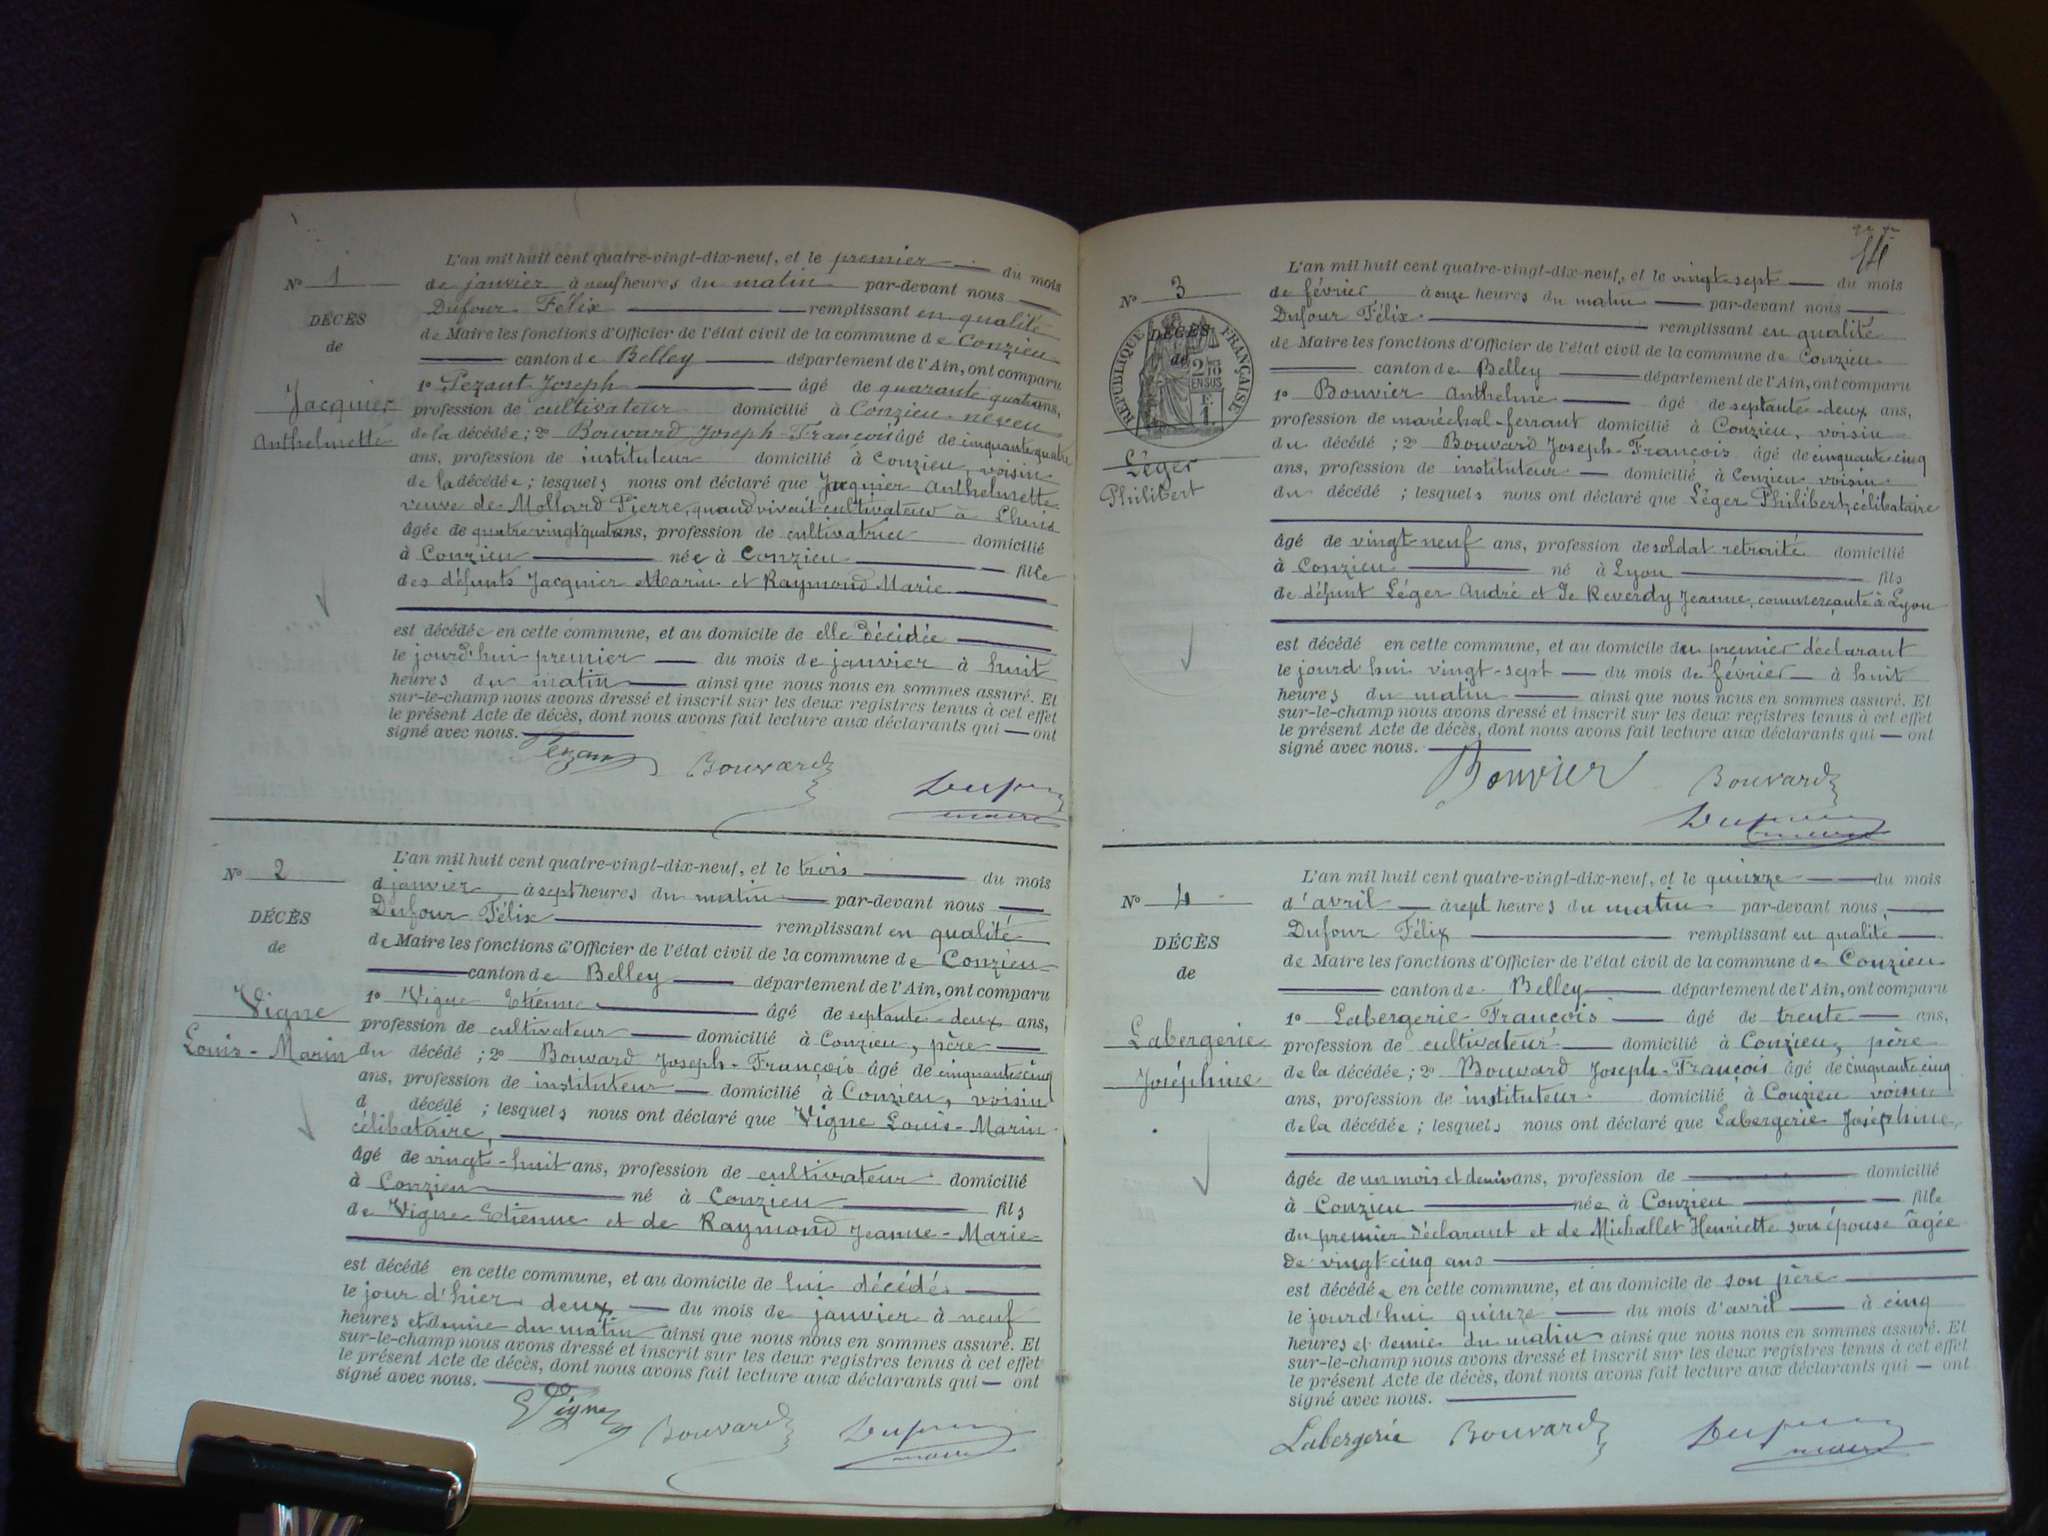 L'an mil huit cent quatre-vingt-dix-neuf, et le premier du mois
N° 1
de janvier à neuf heures du matin par-devant nous
Dufour Félix remplissant en qualité
DÉCÈS
de
de Maire les fonctions d'Officier de l'état civil de la commune de Conzieu
canton de Belley département de l'Ain, ont comparu
Jacquier
Anthelmette
1° Pezant Joseph âgé de quarante quatre ans,
profession de cultivateur domicilié à Conzieu neveu
de la décédée; 2° Bouvard Joseph-François âgé de cinquante quatre
ans, profession de instituteur domicilié à Conzieu, voisin
de la décédée; lesquels nous ont déclaré que Jacquier Anthelmette
veuve de Mollard Pierre, quand vivait cultivateur à Lhuis
âgée de quatre vingt quatre ans, profession de cultivatrice domicilié
à Conzieu née à Conzieu fille
des défunts Jacquier Marin et Raymond Marie
est décédée en cette commune, et au domicile de elle décédée
le jourd'hui premier du mois de janvier à huit
heures du matin ainsi que nous nous en sommes assuré. Et
sur-le-champ nous avons dressé et inscrit sur les deux registres tenus à cet effet
le présent Acte de décès, dont nous avons fait lecture aux déclarants qui — ont
signé avec nous.
Pezant Bouvard Dufour
maire
L'an mil huit cent quatre-vingt-dix-neuf, et le trois du mois
N° 2
d janvier à sept heures du matin par-devant nous
Dufour Félix remplissant en qualité
DÉCÈS
de
de Maire les fonctions d'Officier de l'état civil de la commune de Conzieu
canton de Belley département de l'Ain, ont comparu
Vigne
Louis-Marin
1° Vigne Etienne âgé de septante-deux ans,
profession de cultivateur domicilié à Conzieu, père
du décédé; 2° Bouvard Joseph-François âgé de cinquante cinq
ans, profession de instituteur domicilié à Conzieu, voisin
d décédé; lesquels nous ont déclaré que Vigne Louis-Marin
célibataire,
âgé de vingt-huit ans, profession de cultivateur domicilié
à Conzieu né à Conzieu fils
de Vigne Etienne et de Raymond Jeanne-Marie
est décédé en cette commune, et au domicile de lui décédé
le jour d'hier deux du mois de janvier à neuf
heures et demie du matin ainsi que nous nous en sommes assuré. Et
sur-le-champ nous avons dressé et inscrit sur les deux registres tenus à cet effet
le présent Acte de décès, dont nous avons fait lecture aux déclarants qui — ont
signé avec nous.
Vigne Bouvard Dufour
maire
L'an mil huit cent quatre-vingt-dix-neuf, et le vingt-sept du mois
N° 3
de février à onze heures du matin par-devant nous
Dufour Félix remplissant en qualité
DÉCÈS
de
RÉPUBLIQUE FRANÇAISE
2/10 EN SUS
F. 1
de Maire les fonctions d'Officier de l'état civil de la commune de Conzieu
canton de Belley département de l'Ain, ont comparu
Léger
Philibert
1° Bouvier Anthelme âgé de septante-deux ans,
profession de maréchal-ferrant domicilié à Conzieu, voisin
du décédé; 2° Bouvard Joseph-François âgé de cinquante-cinq
ans, profession de instituteur domicilié à Conzieu voisin
du décédé; lesquels nous ont déclaré que Léger Philibert, célibataire
âgé de vingt neuf ans, profession de soldat retraité domicilié
à Conzieu né à Lyon fils
de défunt Léger André et de Reverdy Jeanne, commerçante à Lyon
est décédé en cette commune, et au domicile du premier déclarant
le jourd'hui vingt-sept du mois de février à huit
heures du matin ainsi que nous nous en sommes assuré. Et
sur-le-champ nous avons dressé et inscrit sur les deux registres tenus à cet effet
le présent Acte de décès, dont nous avons fait lecture aux déclarants qui — ont
signé avec nous.
Bouvier Bouvard
Dufour
maire
L'an mil huit cent quatre-vingt-dix-neuf, et le quinze du mois
N° 4
d'avril à sept heures du matin par-devant nous,
Dufour Félix remplissant en qualité
DÉCÈS
de
de Maire les fonctions d'Officier de l'état civil de la commune de Conzieu
canton de Belley département de l'Ain, ont comparu
Labergerie
Joséphine
1° Labergerie François âgé de trente ans,
profession de cultivateur domicilié à Conzieu, père
de la décédée; 2° Bouvard Joseph-François âgé de cinquante cinq
ans, profession de instituteur domicilié à Conzieu voisin
de la décédée; lesquels nous ont déclaré que Labergerie Joséphine,
âgée de un mois et demi ans, profession de domicilié
à Conzieu née à Conzieu fille
du premier déclarant et de Michallet Henriette son épouse âgée
de vingt cinq ans
est décédée en cette commune, et au domicile de son père
le jourd'hui quinze du mois d'avril à cinq
heures et demie du matin ainsi que nous nous en sommes assuré. Et
sur-le-champ nous avons dressé et inscrit sur les deux registres tenus à cet effet
le présent Acte de décès, dont nous avons fait lecture aux déclarants qui — ont
signé avec nous.
Labergerie Bouvard Dufour
maire